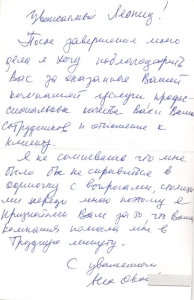 Уважаемый Леонид!
После завершения моего
дела я хочу поблагодарить
Вас за оказанные Вашей
компанией услуги профес-
сиональные качества Ваши Ваших
сотрудников и отношение к
клиенту.
Я не сомневаюсь что мне
было бы не справиться в
одиночку с вопросами,
передо мною поэтому я
признательна Вам за то, что Ваша
компания помогла мне в
трудную минуту.
С уважением